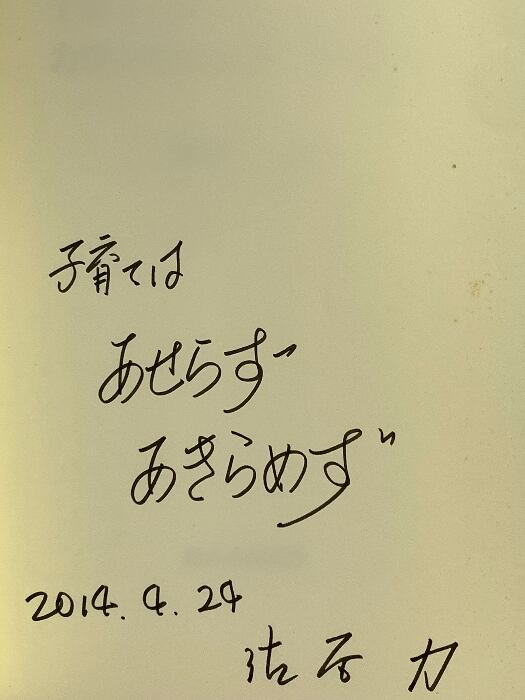 子育ては
あせらず
あきらめず
2014.4.24
力